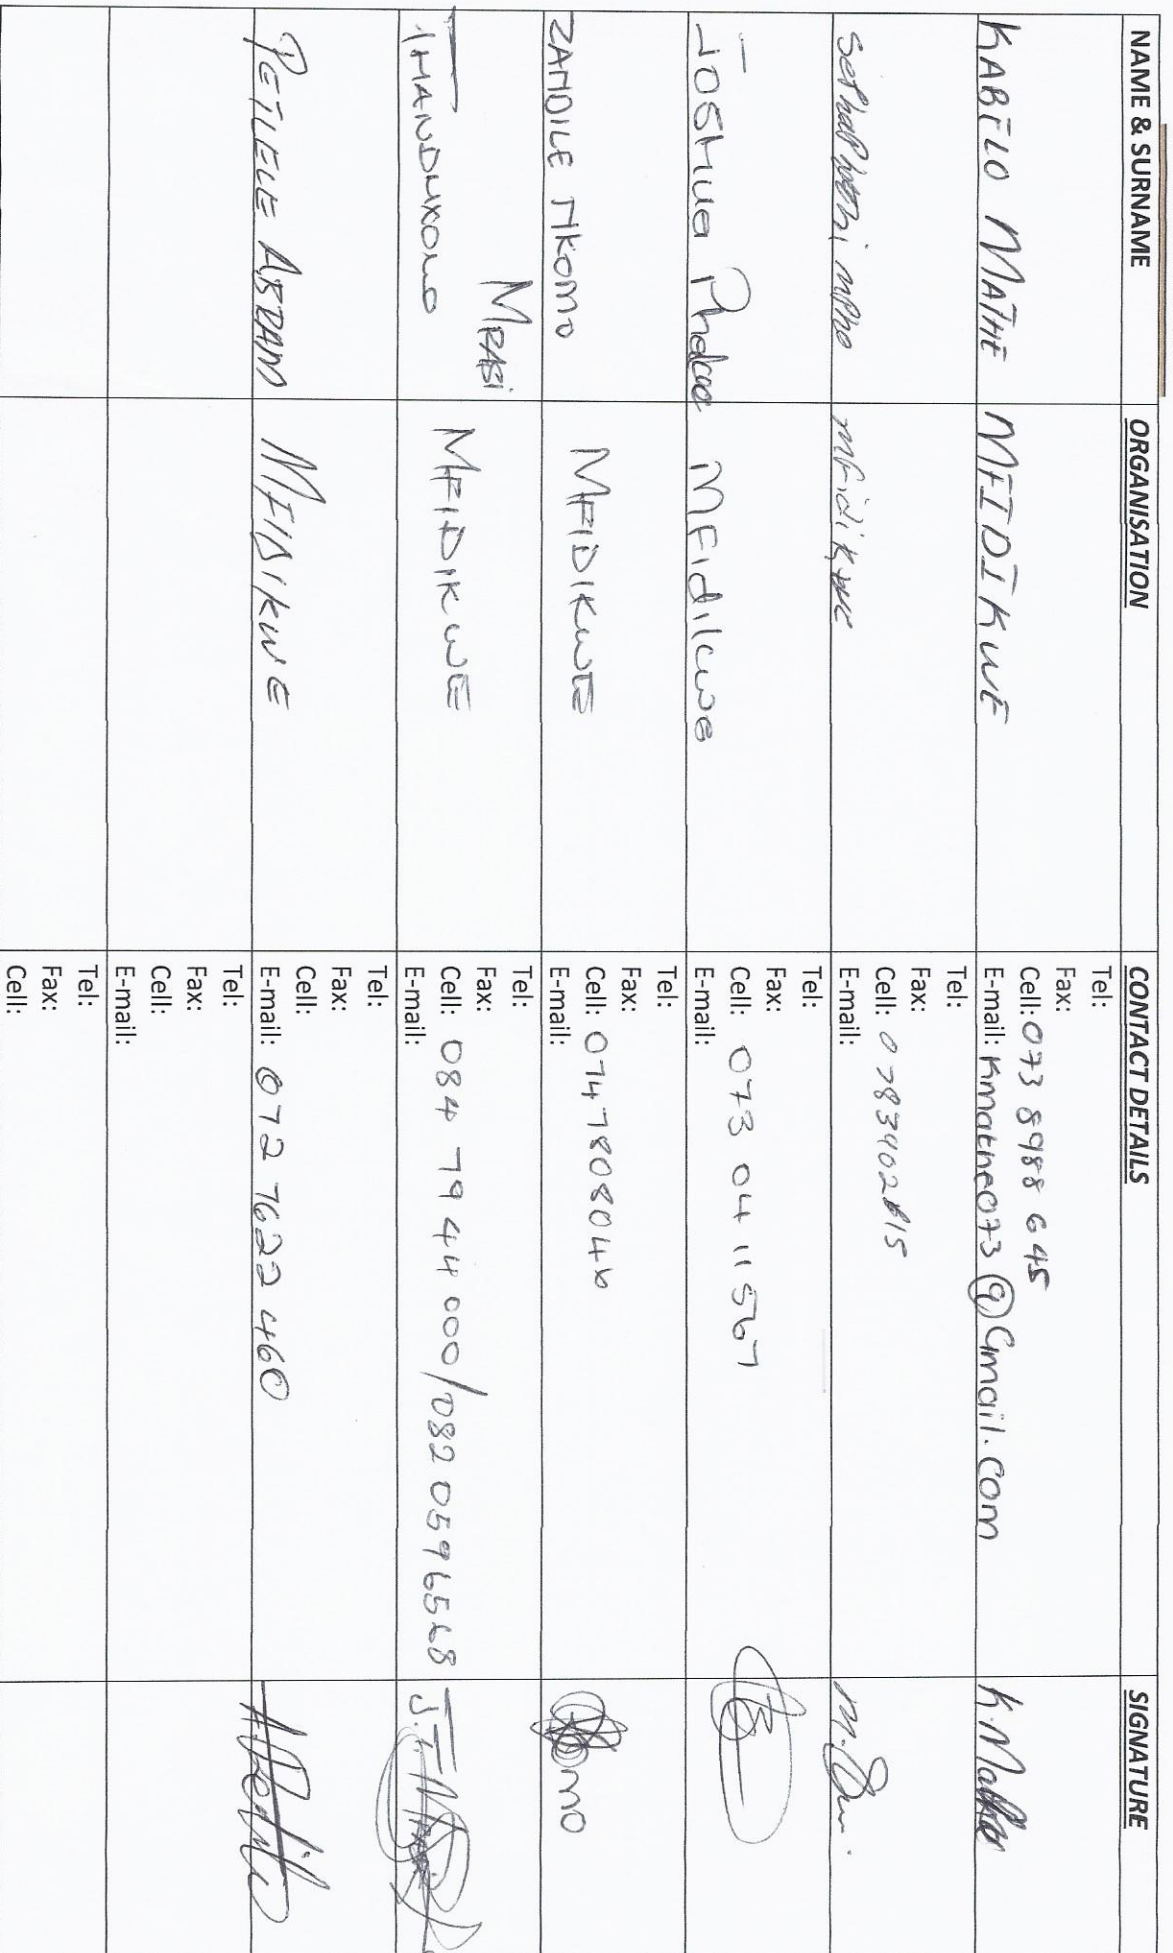 NAME & SURNAME ORGANISATION CONTACT DETAILS SIGNATURE
KABELO MATHE MFIDIKWE Tel:
Fax:
Cell: 073 8988 645
E-mail: Kmathe073@Gmail.com K.Mathe
mpho mfidikwe Tel:
Fax:
Cell:
E-mail:
Joshua MFidikwe Tel:
Fax:
Cell: 073 04 11 567
E-mail:
ZANDILE NKOMO MFIDIKWE Tel:
Fax:
Cell: 0747808046
E-mail:
MRASI
THANDUXOLO MFIDIKWE Tel:
Fax:
Cell: 084 79 44 000/082 0596568
E-mail:
PETLELE ABRAM MFIDIKWE Tel:
Fax:
Cell:
E-mail: 072 7622 460
Tel:
Fax:
Cell:
E-mail:
Tel:
Fax:
Cell: